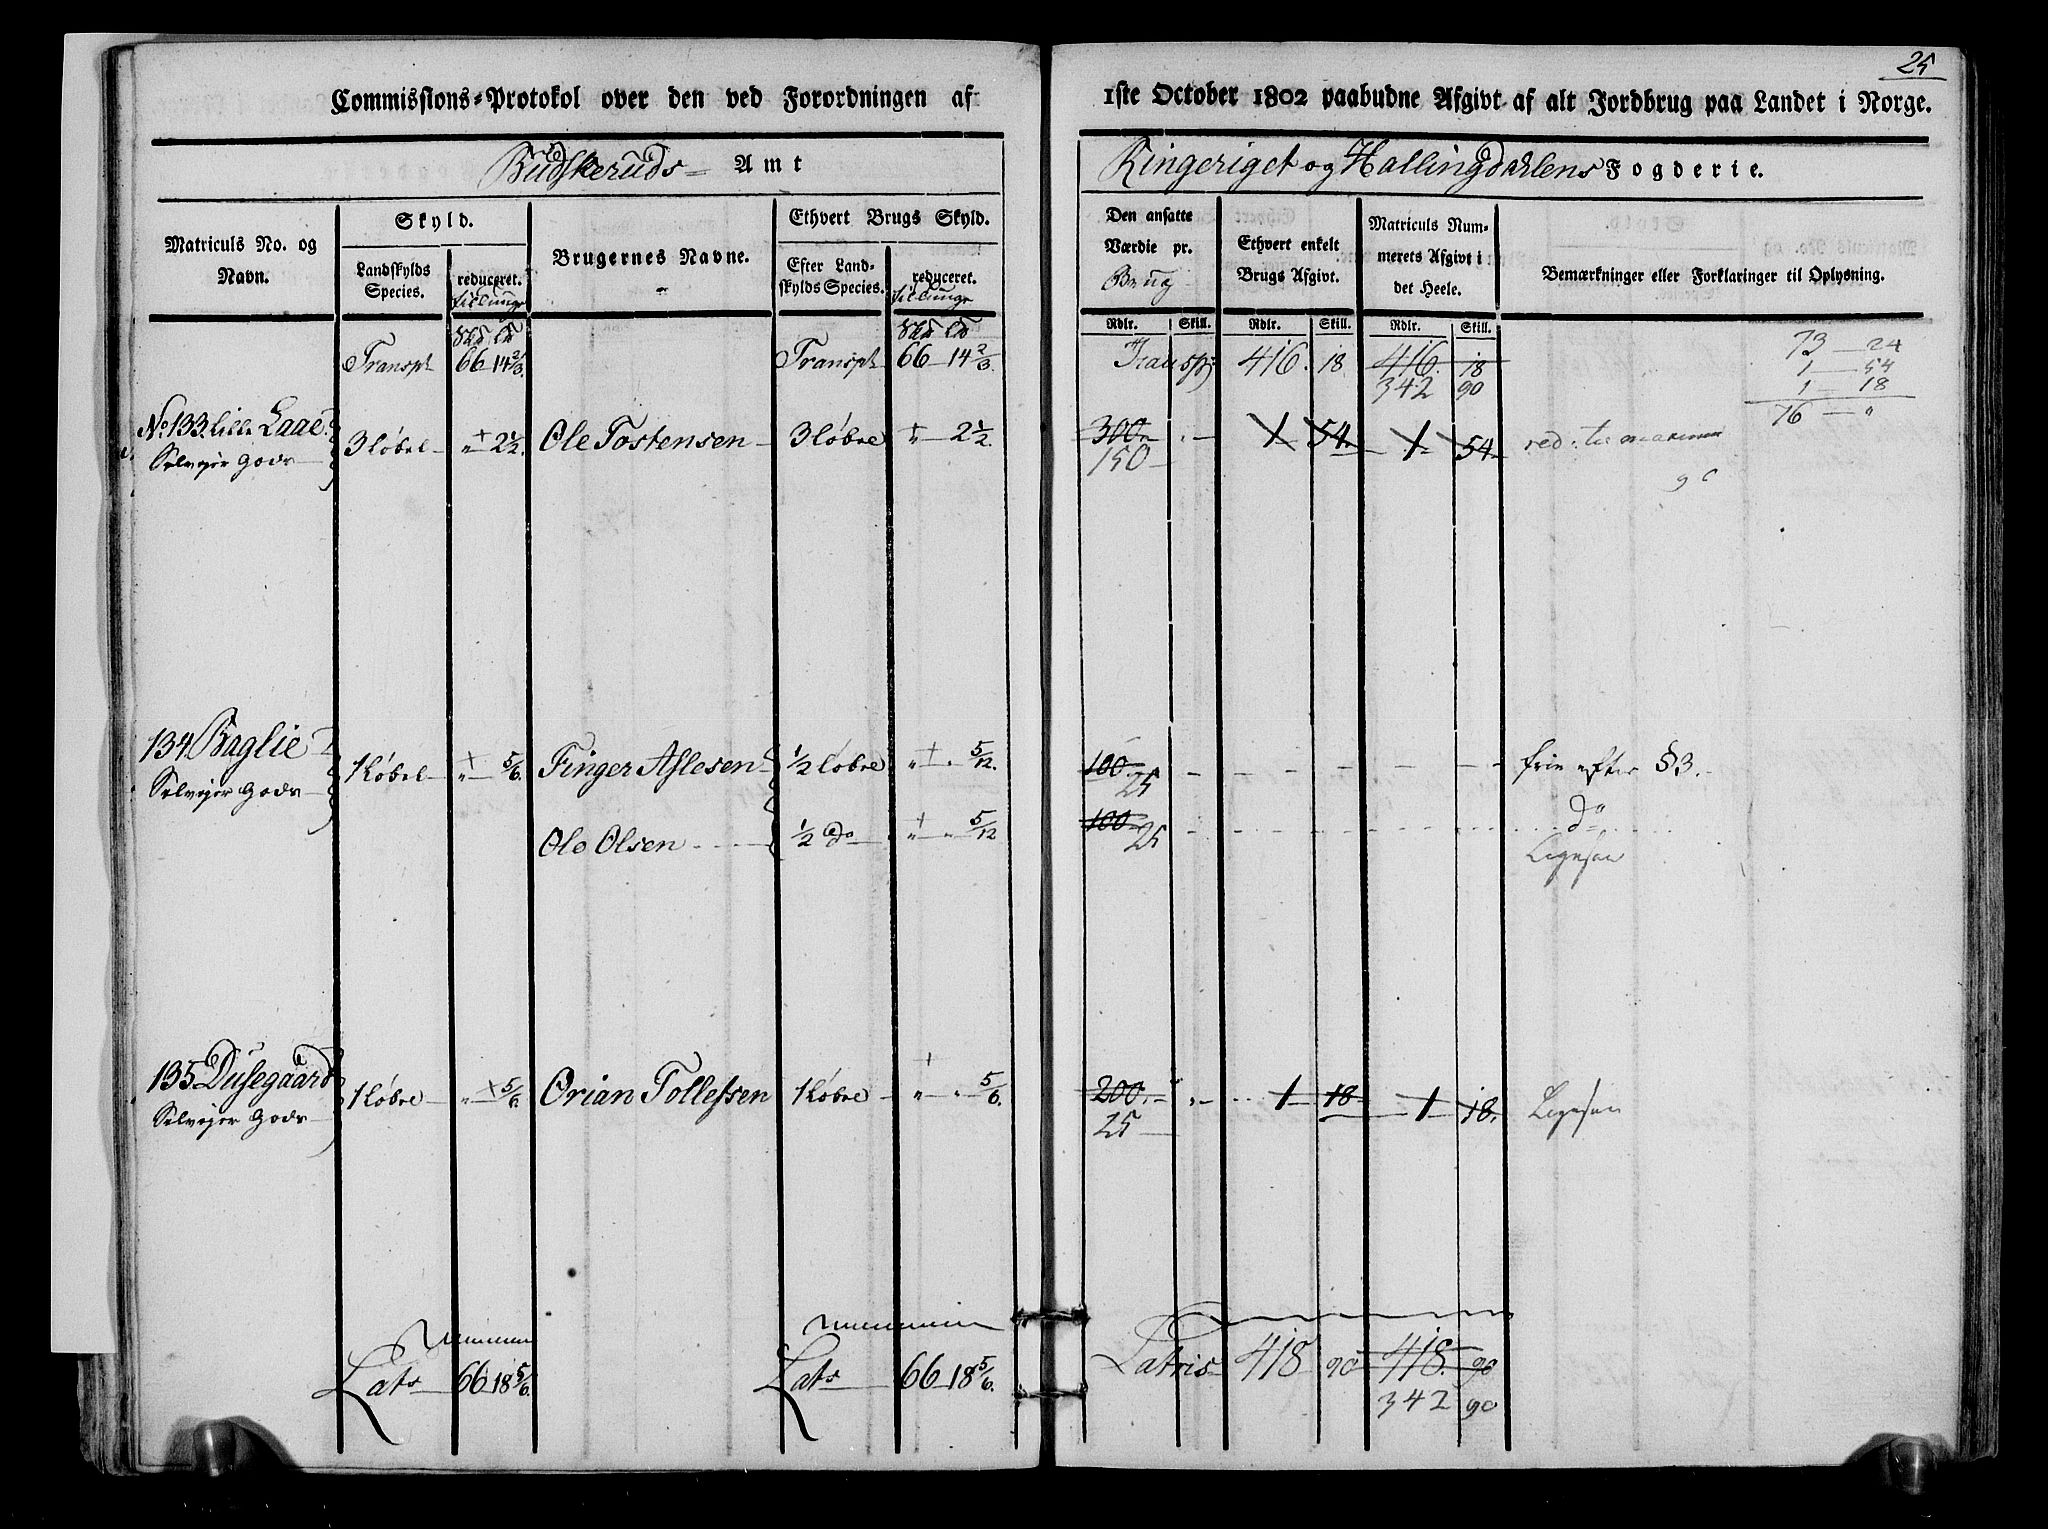 25
Commissions-Protokol over den ved Forordningen af 1ste October 1802 paabudne Afgivt af alt Jordbrug paa Landet i Norge.
Budskeruds Amt
Ringeriget og Hallingdahlens Fogderie.
Matriculs No. og Navn.
Skyld.
Landskylds Species.
reduceret.
Brugernes Navne.
Ethvert Brugs Skyld.
Efter Landskylds Species.
reduceret.
Den ansatte Værdie pr. Brug
Ethvert enkelt Brugs Afgivt.
Matriculs Nummerets Afgivt i det Heele.
Bemærkninger eller Forklaringer til Oplysning.
Rdlr. Skill. Rdlr. Skill. Rdlr. Skill.
Transpt 66 14 2/3. Transpt 66 14 2/3. Transp: 416. 18 416. 18
342 90
73 — 24
1 — 54
1 — 18
76 — "
No 133. Lille Laae 3 Løbe " 2 1/2. Ole Tostensen 3 Løbe " 2 1/2. 300 1 54. 1 54 red:
Selveier Gods 150
134 Baglie 1 Løbe " 5/6. Finger Aslesen 1/2 Løbe " 5/12. 100. frie efter §3.
Selveier Gods 25
Ole Olsen 1/2 do " 5/12 100 do
25
135 Dusegaard 1 Løbe " 5/6. Orian Tollefsen 1 Løbe " 5/6. 200. 1 18 1 18.
Selveier Gods 25
Lats 66 18 5/6. Lats 66 18 5/6. Latris 418 90 418. 90
342 90